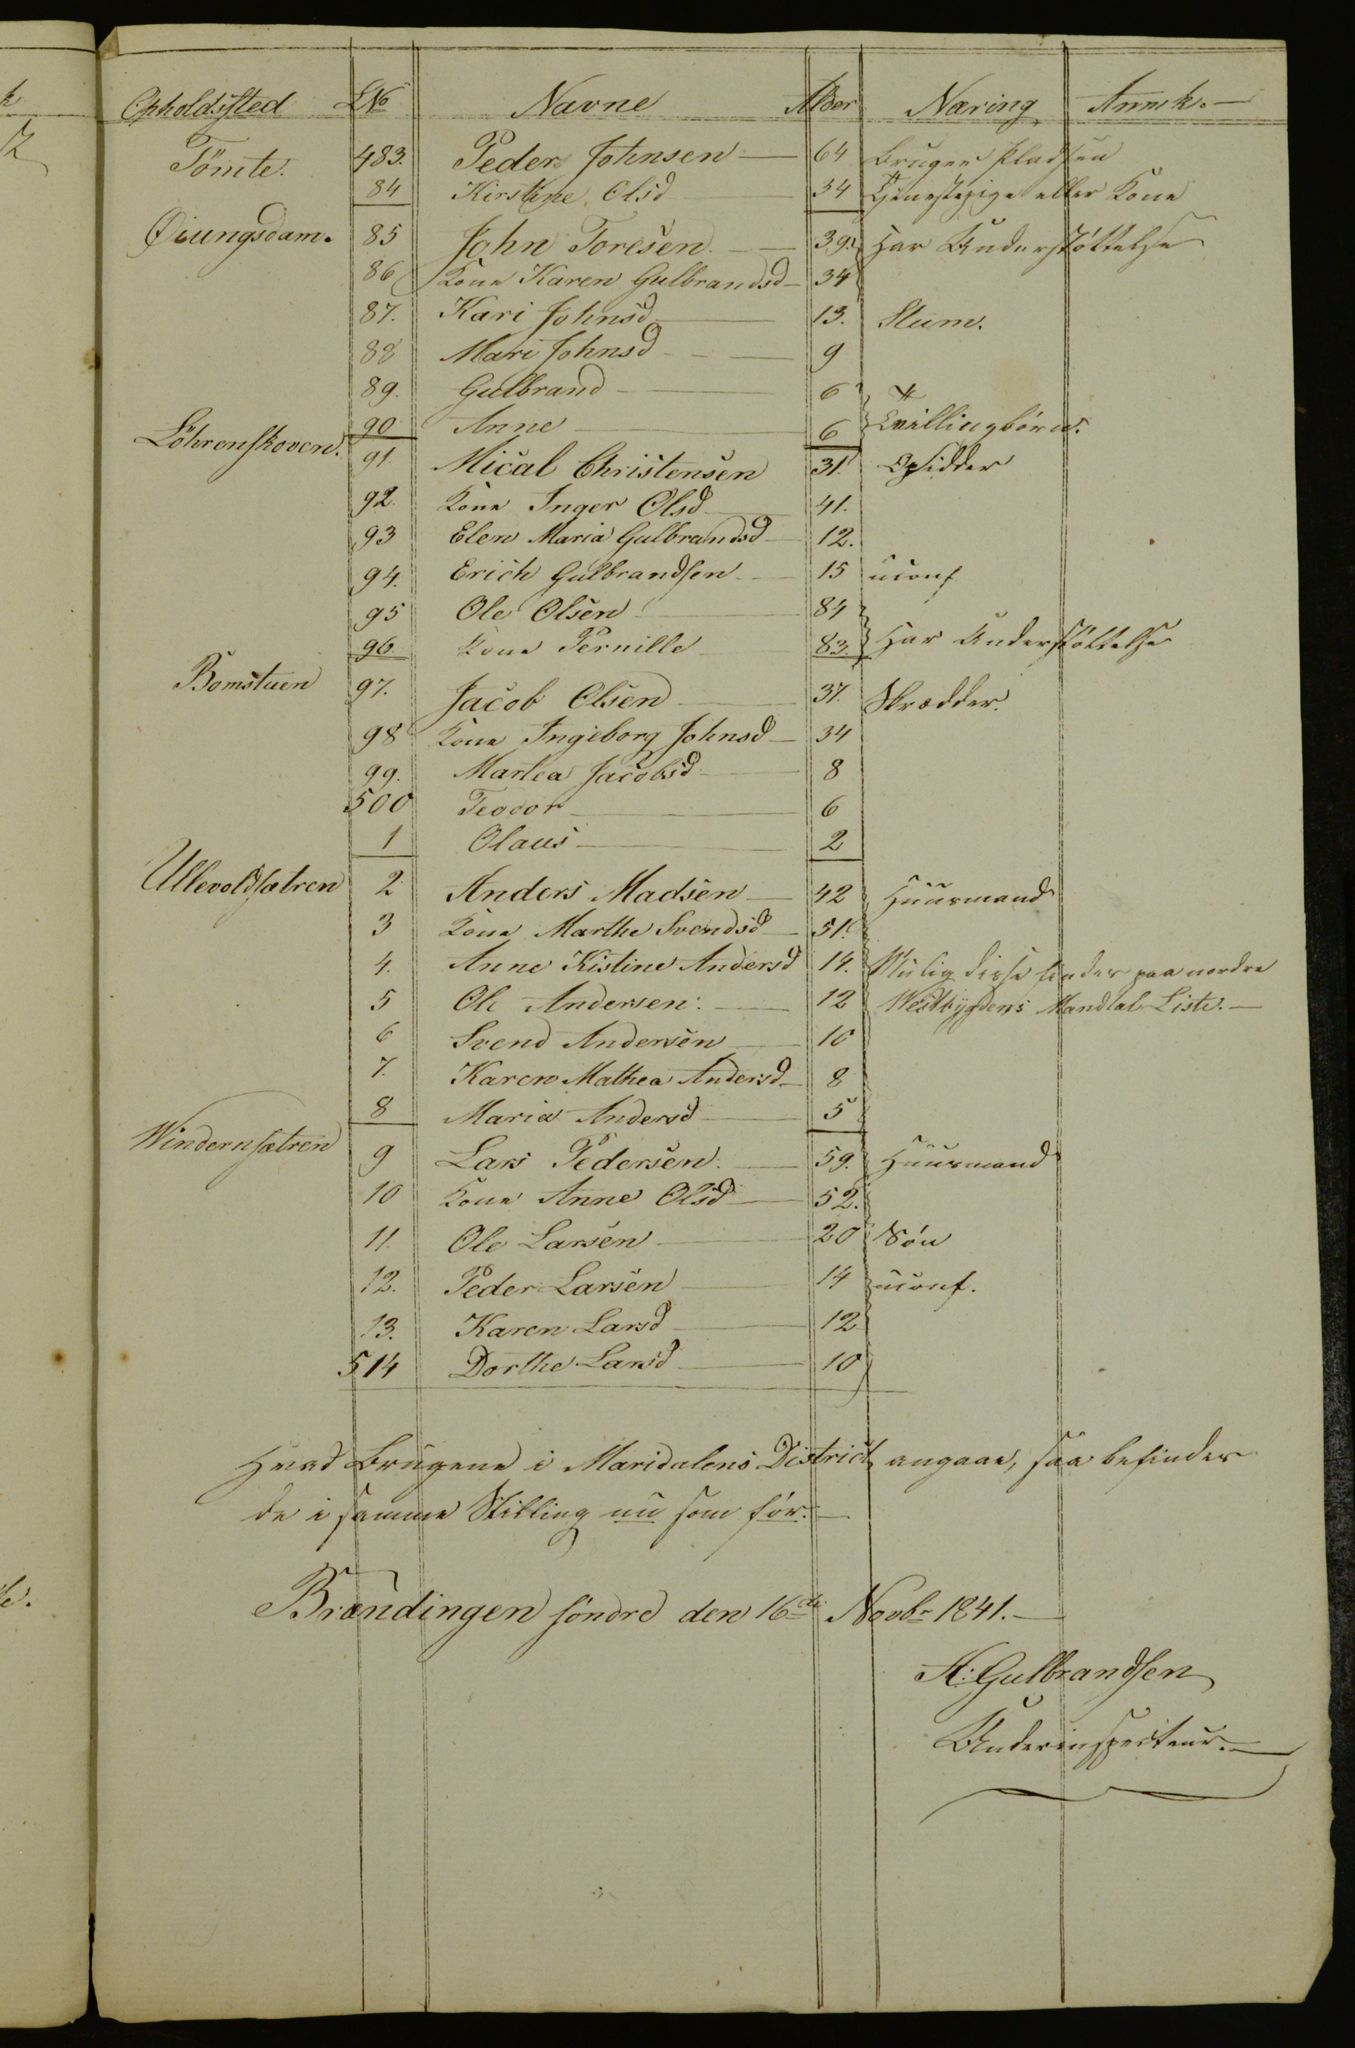 Opholdssted LNo Navne Alder Næring Anmk.
Tömte. 483. Peder Johnsen 64 bruger Pladsen
84 Kirstine Olsd 34 Tjenestepige eller Kone
Øiungsdam. 85 John Toresen 39 Har Understöttelse
86 Kone Karen Gulbrandsd 34
87. Kari Johnsd 13. Stum.
88 Mari Johnsd 9
89. Gulbrand 6
90 Anne 6 Tvillingbörn.
Löhrenskoven. 91. Micæl Christensen 31. Opsidder
92. Kone Inger Olsd 41.
93 Elen Maria Gulbrandsd 12.
94. Erich Gulbrandsen 15 uconf
95 Ole Olsen 84
96. Kone Pernille 83. Har Understöttelse
Bomstuen 97. Jacob Olsen 37. Skrædder.
98 Kone Ingeborg Johnsd 34
99. Martea Jacobsd 8
500 Teodor 6
1 Olaus 2
Ullevoldsætren 2 Anders Madsen 42 Huusmand
3 Kone Marthe Svendsd 51.
4. Anne Kistine Andersd 14. Mulig disse findes paa nordre
5 Ole Andersen 12 Westbygdens Mandtal Liste.
6 Svend Andersen 10
7. Karen Mathea Andersd 8
8 Maria Andersd 5
Windernsætren 9 Lars Pedersen. 59. Huusmand
10 Kone Anne Olsd 52.
11. Ole Larsen 20 Sön
12. Peder Larsen 14 uconf.
13. Karen Larsd 12
514 Dorthe Larsd 10
Hvad Brugene i Maridalens District angaae, saa befindes
de i samme Stilling nu som för.
Brændingen söndre den 16de Novbr 1841.
A: Gulbrandsen
Underinspecteur.